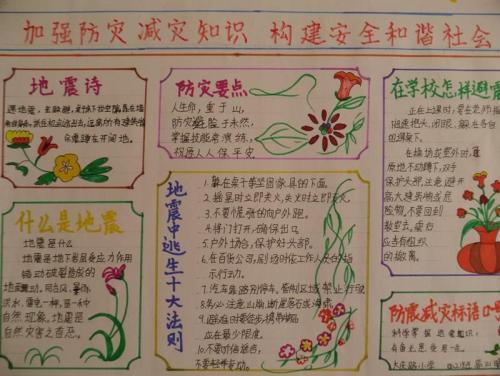 加强防灾减灾知识 构建安全和谐社会
地震诗
保蹲在开阔地。
防灾要点
人生命，重于山，
防灾避险于未然，
掌握技能常演练，
人人保平安
什么是地震
地震是什么
地震是地下岩层受应力作用
错动破裂造成的
地动，同台风、暴雨、
洪水、雷电一样，是一种
自然现象。地震是
自然灾害之首恶。
地震中逃生十大法则
1.躲在桌子等坚固家具的下面。
2.摇晃时立即关火，失火时立即灭火。
3.不要慌张的向户外跑。
4.将门打开，确保出口。
5.户外场合，保护好头部。
6.在百货公司、剧场时依工作人员的指
示行动。
7.汽车靠路边停车，管制区域禁止行驶
8.务必注意山崩、断崖落石或海啸
9.避难时要徒步，携带物品
应在最少限度。
10.不要听信谣言，
不要轻举妄动。
在学校怎样避震
正在上课时，要在老师指
抱头、闭眼、躲在各自
的课桌下。
在操场或室外时，
原地不动蹲下，双手
保护头部，注意避开
高大建筑物或危
险物，不要回到
教室去。震后
应当有组织
的撤离。
防震减灾标语口号